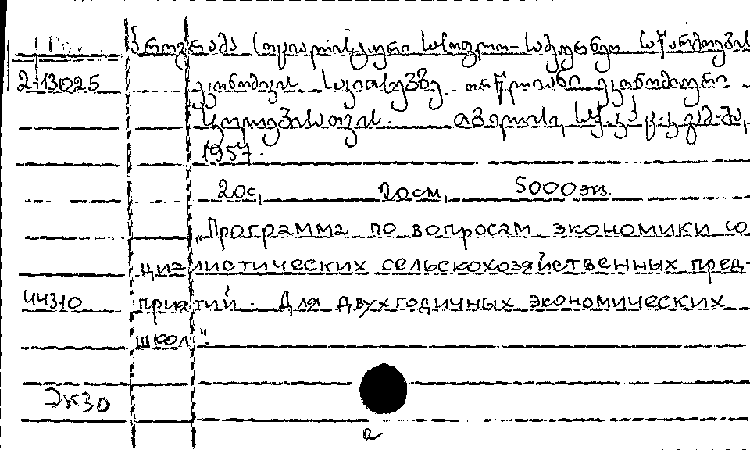 პროგრამა სოციალისტური სასოფლო-სამეურნეო საწარმოების
2-131025 ეკონომიკის საკითხებზე ორწლიანი ეკონომიური
სკოლებისათვის. თბილისი,
1957.
20с, 20см, 5000 экз.
„Программа по вопросам экономики со
циалистических сельскохозяйственных пред-
44310 приятий. Для двухгодичных экономических
школ".
Экз0